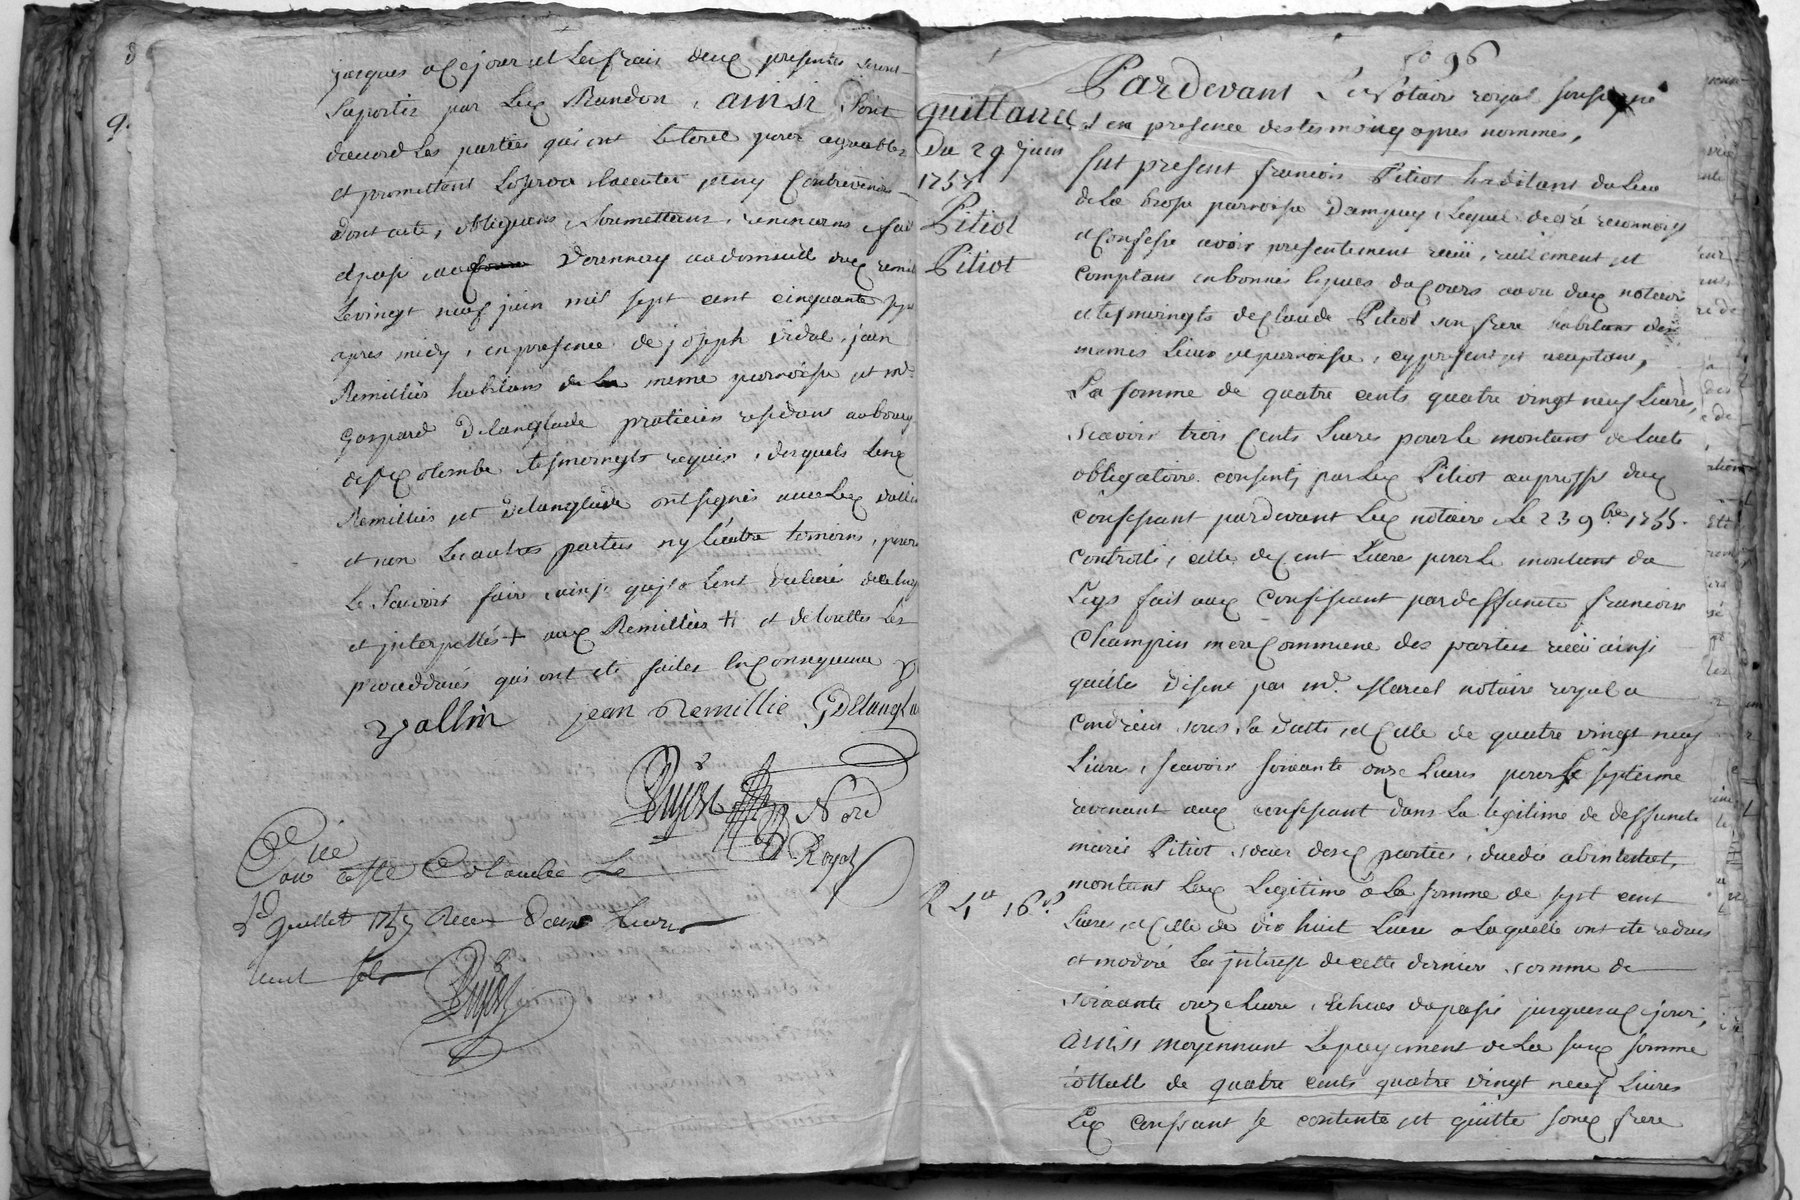 jacques a ce jour et les frais deux presentes seront
suportés par Led Randon, ainsi sont
daccord les parties qui ont le tout pour agreable
et promettent
dont acte, obligeans, soumettans, renoncans, fait
et passé Verennay au domicile dud remil
le vingt neuf juin mil sept cent cinquante sept
apres midy, en presence de joseph vidal, jean
Remilliés habitans de la meme parroisse et mr
Gaspard Delanglade praticien residant au bourg
de ste Colombe tesmoingts requis, desquels lesd
Remilliés et Delanglade ont signés avec led vallin
et non les autres parties ny lautre temoins, pour
le scavoir faire ainsi quils lont declaré de ce enquis
et interpellés + aux Remilliés + et de toutes les
procedures qui ont eté faites en consequence
vallin jean Remillie GDelangla
Dujost Nord
Royal
Con à Ste Colombe le
juillet 1757 Recu deux livres
huit sols
Dujost
fo 96
quittance
Du 29 juin
1757
Pitiot
Pitiot
Pardevant Le Notaire royal soussigné
et en presence des tesmoings apres nommés,
fut present francois Pitiot habitant du lieu
de la brosse parroisse Dampuy, lequel de gré reconnois
et confesse avoir presentement recu, réellement et
comptant en bonnes especes du cours au vu dud notaire
et tesmoingts de Claude Pitiot son frere habitant des
memes lieux et parroisse, cy present et acceptant,
La somme de quatre cents quatre vingt neuf livres,
scavoir trois cents livres pour le montant de lacte
obligatoire consenty par led Pitiot au proffit dud
confessant pardevant led notaire le 23 9bre 1755.
controllé, celle de cent livres pour le montant du
Legs fait aud Confessant par deffuncte francoise
Champin mere commune des parties recu ainsi
quelles disent par mr. Marcel notaire royal a
condrieu sous sa datte, et celle de quatre vingt neuf
livre, scavoir soixante onze livres pour le septieme
revenant aud confessant dans la legitime de deffuncte
marie Pitiot, soeur desd parties, decedée abintestat,
montant lad Legitime a la somme de sept cent
R 4lt 16s
livres, et celle de dix huit livre a laquelle ont eté reduis
et moderé les jnterest de cette derniere somme de
soixante onze livre, echues du passé jusques a ce jour,
ainsi moyennant le payement de la susd somme
totalle de quatre cents quatre vingt neuf livres
Led confessant se contente et quitte sond frere